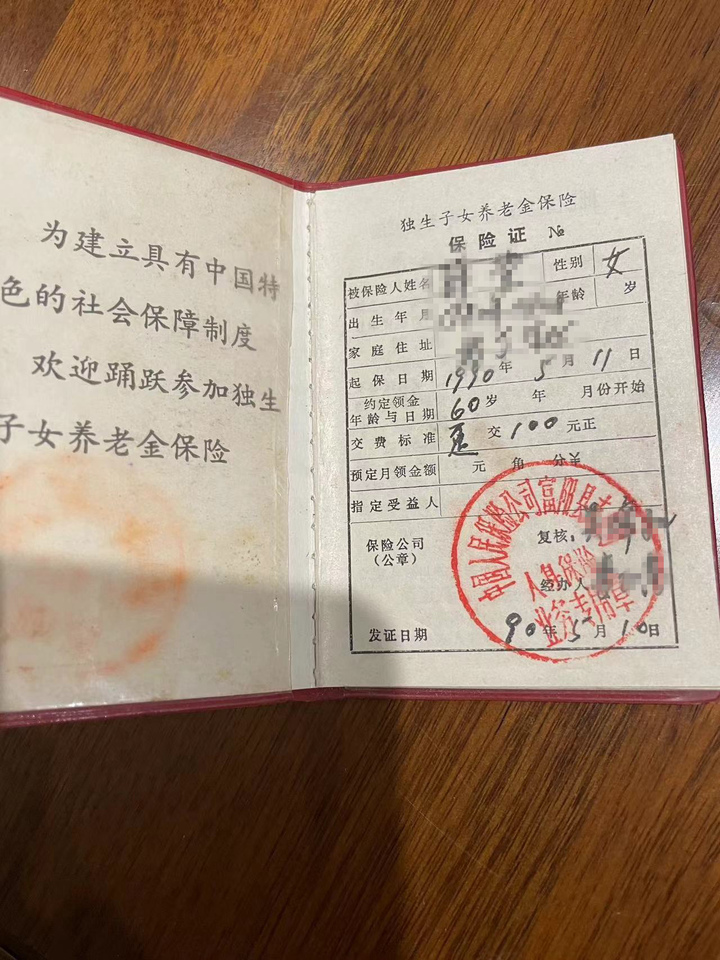 为建立具有中国特
色的社会保障制度
欢迎踊跃参加独生
子女养老金保险
独生子女养老金保险
保险证 №
被保险人姓名 性别 女
出生年月 年龄 岁
家庭住址
起保日期 1990年5月11日
约定领金
年龄与日期 60岁 年 月份开始
交费标准 交100元正
预定月领金额 元 角 分
指定受益人
保险公司
(公章)
复核:
经办人
中国人民保险公司富阳县支
人身保险
业务专用章
发证日期 90年5月10日